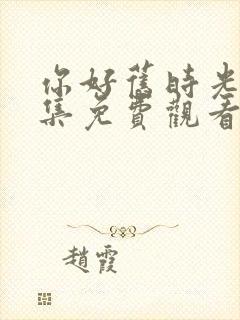 你好舊時光
集免費觀看
趙霞